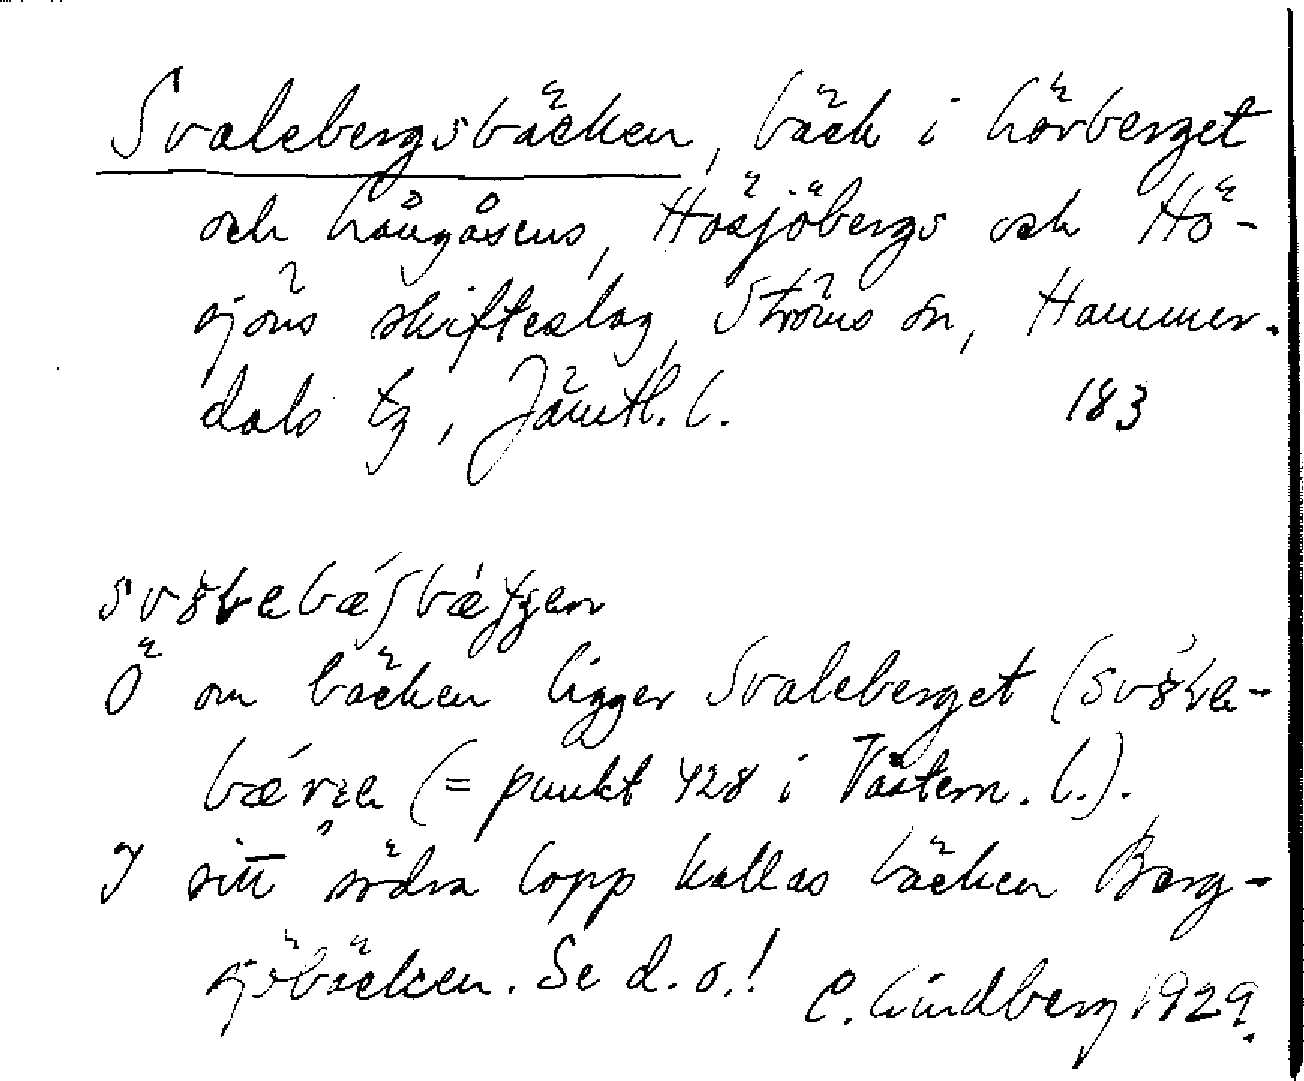 Svalebergsbäcken, bäck i Lövberget
och Långåsens, Hösjöbergs och Hö-
sjöns skifteslag, Ströms sn, Hammer-
dals tg, Jämtl. l. 183
Ö om bäcken ligger Svaleberget
(= punkt 428 i Västern. l.).
I sitt södra lopp kallas bäcken Berg-
sjöbäcken. Se d. o.! C. Lindberg 1929.